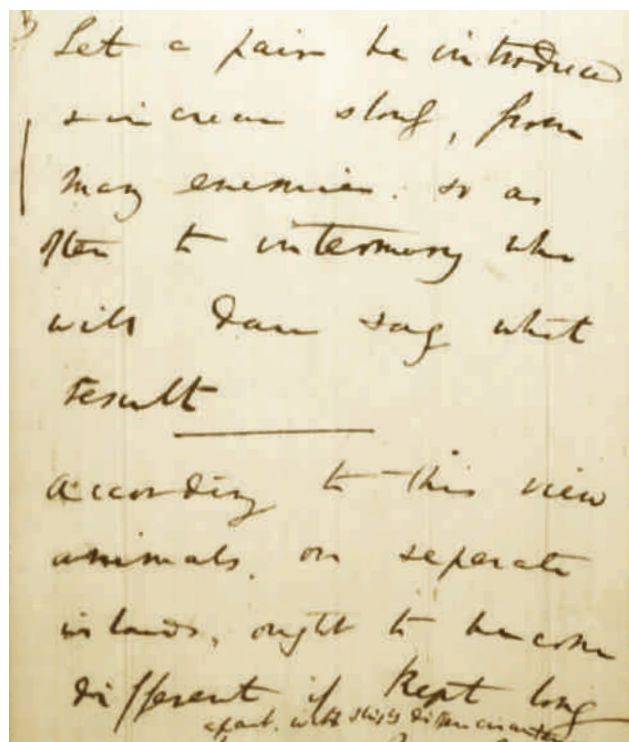 Let a pair be introduced
& increase slowly, from
many enemies. so as
often to intermarry who
will dare say what
result
According to this view
animals. on separate
islands, ought to become
different if kept long
apart. with slightly differen